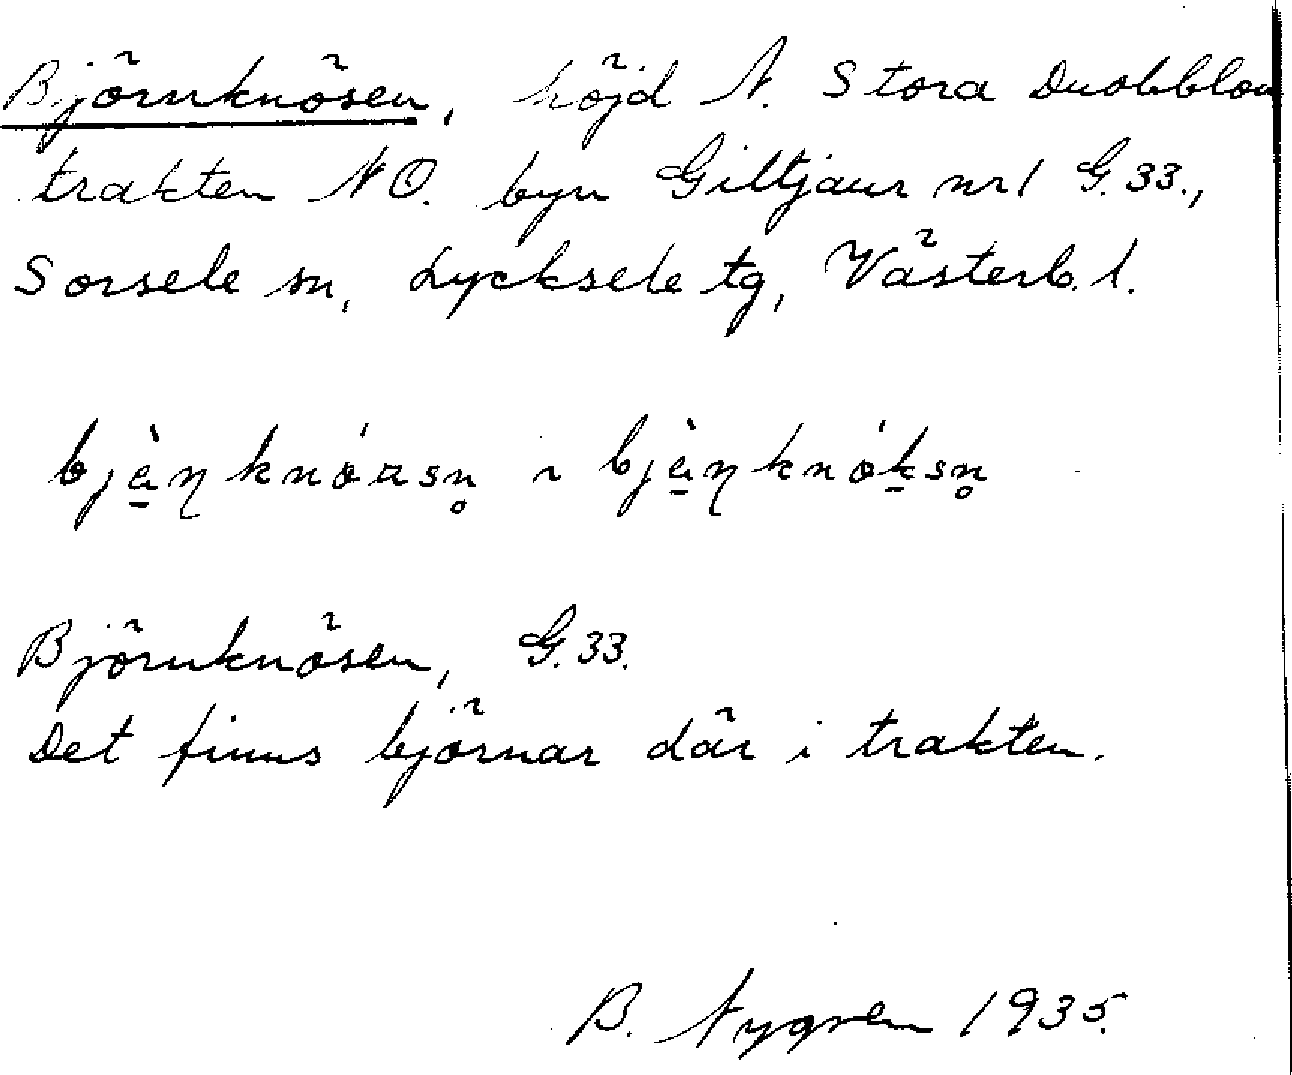 Björnknösen, höjd N. Stora Duobblon
trakten NO. byn Gilltjaur nr 1 G.33.,
Sorsele sn, Lycksele tg, Västerb. l.
Björnknösen, G.33.
Det finns björnar där i trakten.
B. Nygren 1935.